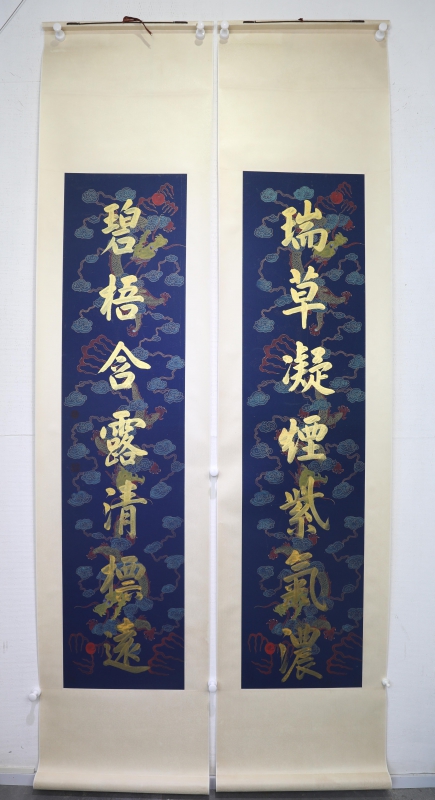 瑞草凝煙紫氣濃
碧梧含露清標遠